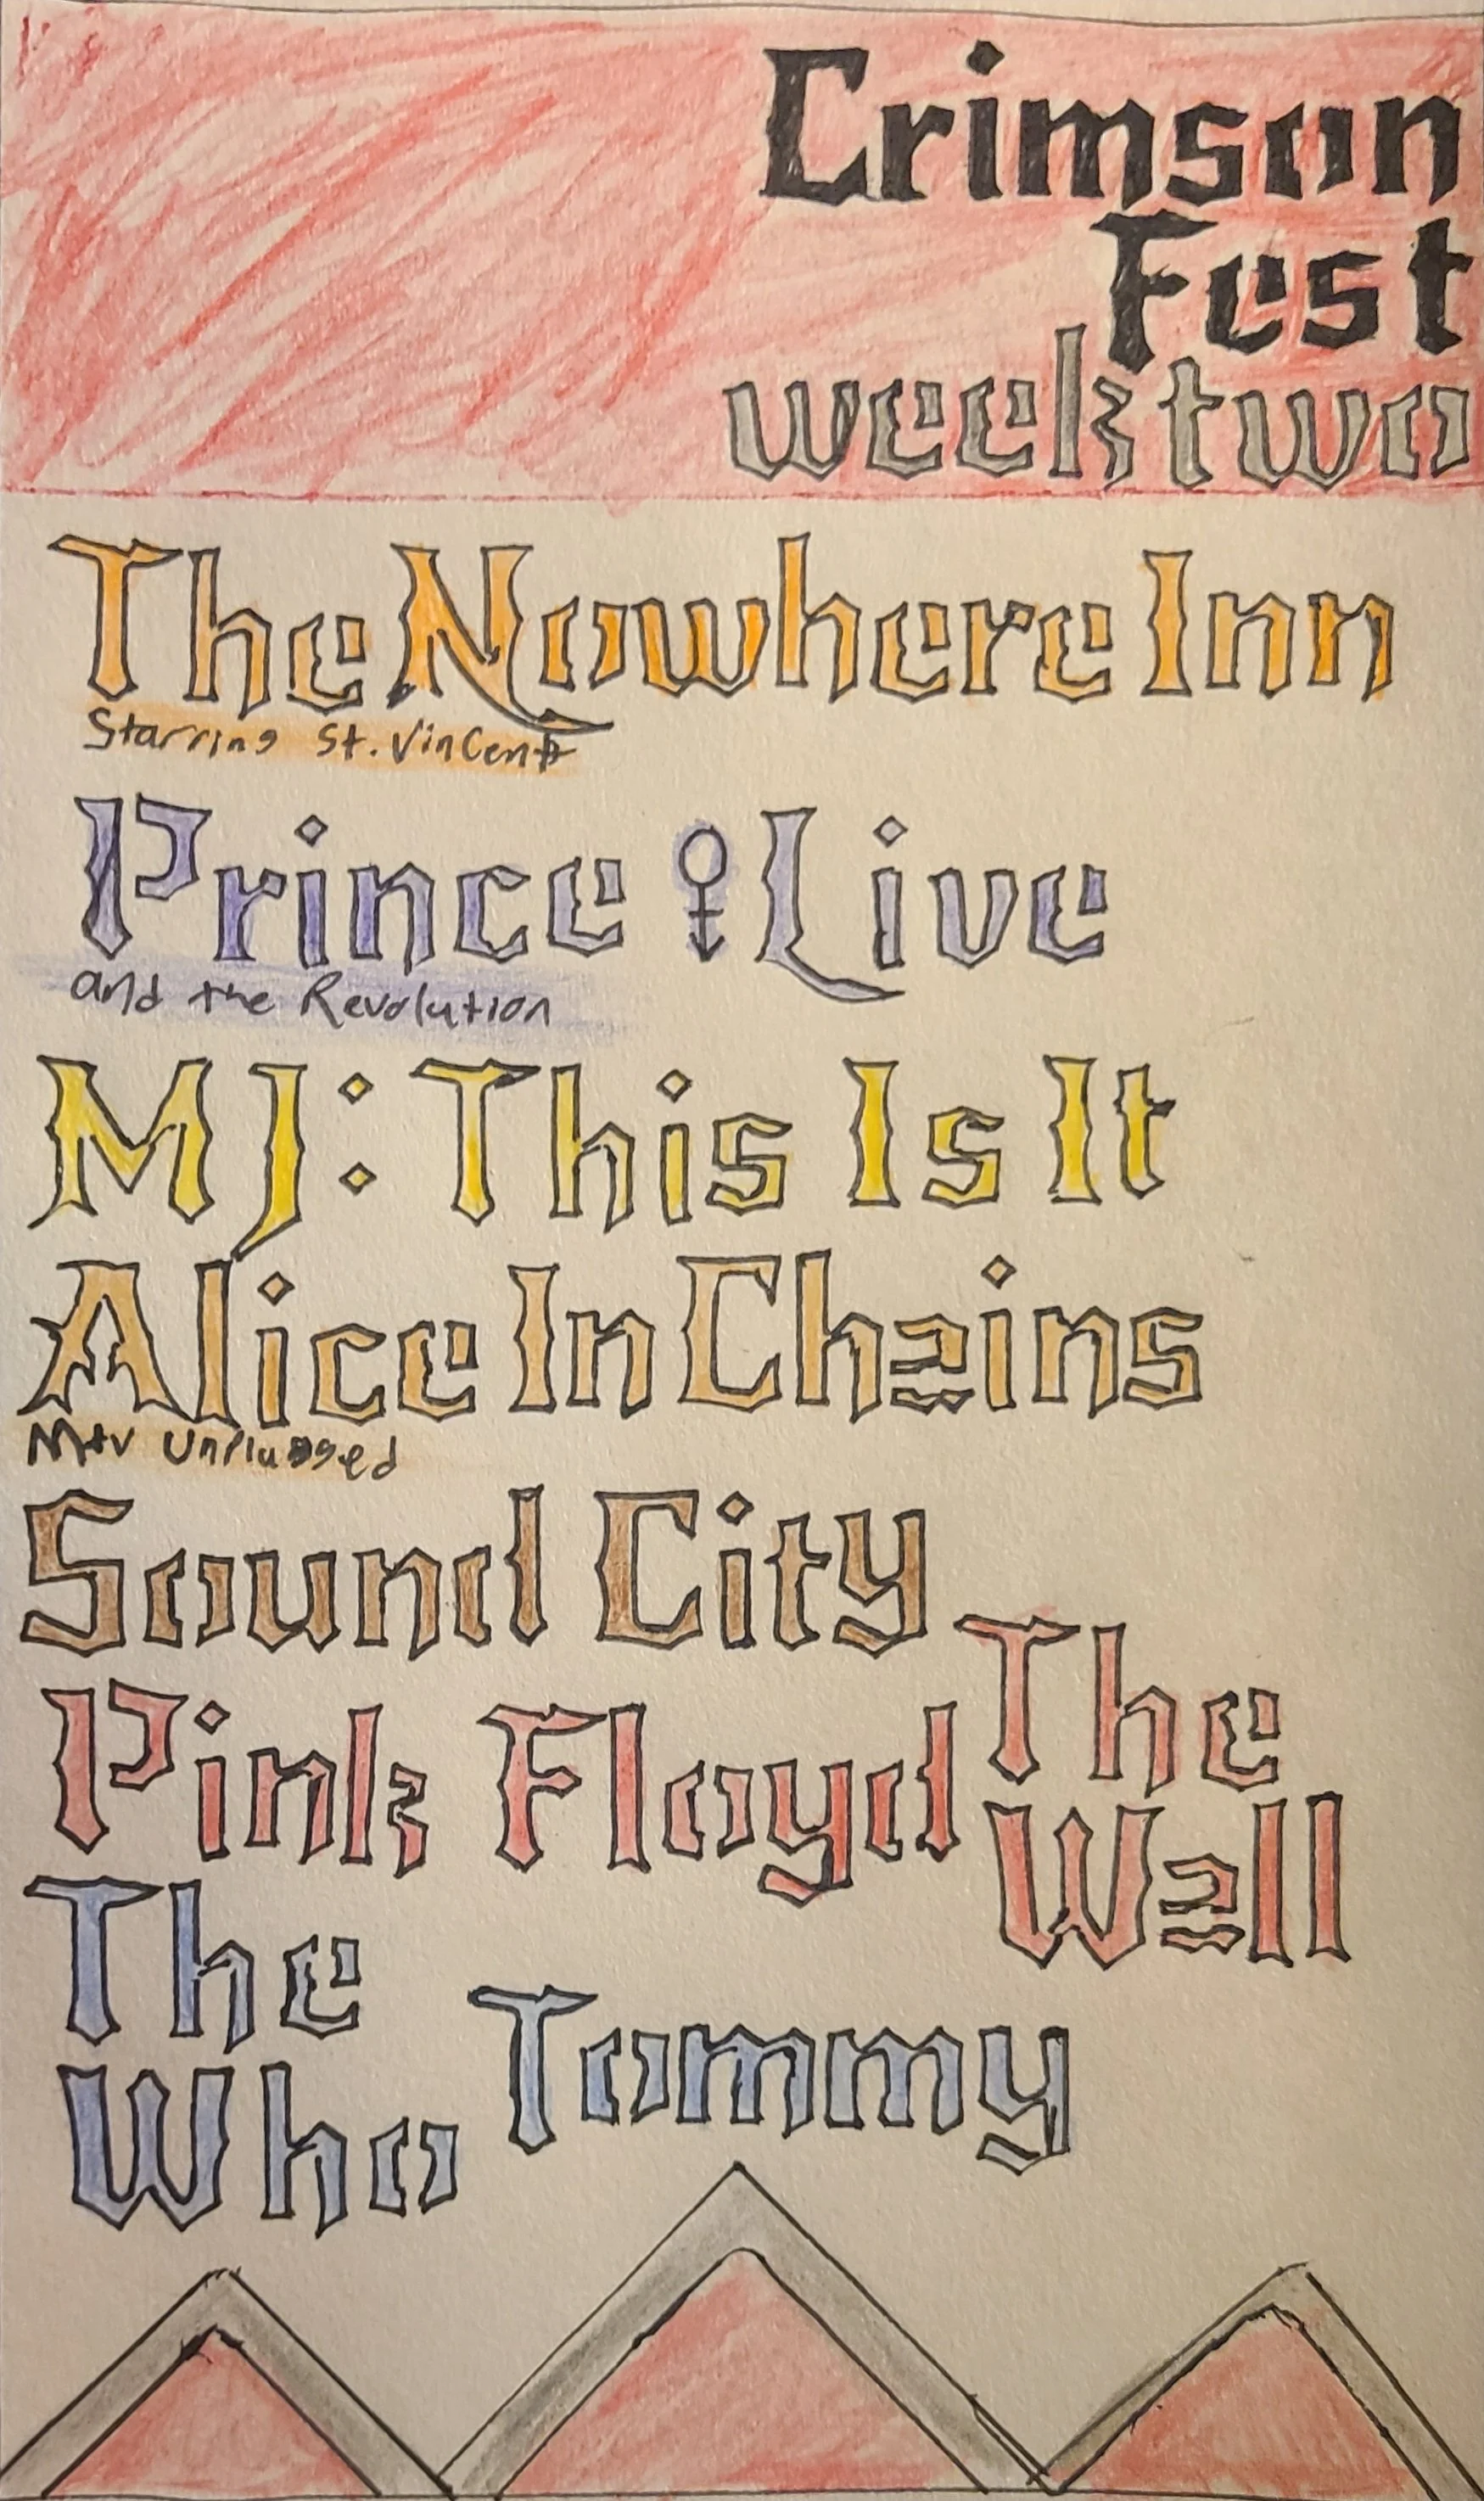 Crimson
Fest
week two
The Nowhere Inn
Starring St. Vincent
Prince Live
and the Revolution
MJ: This Is It
Alice In Chains
Mtv Unplugged
Sound City
Pink Floyd The Wall
The Who Tommy